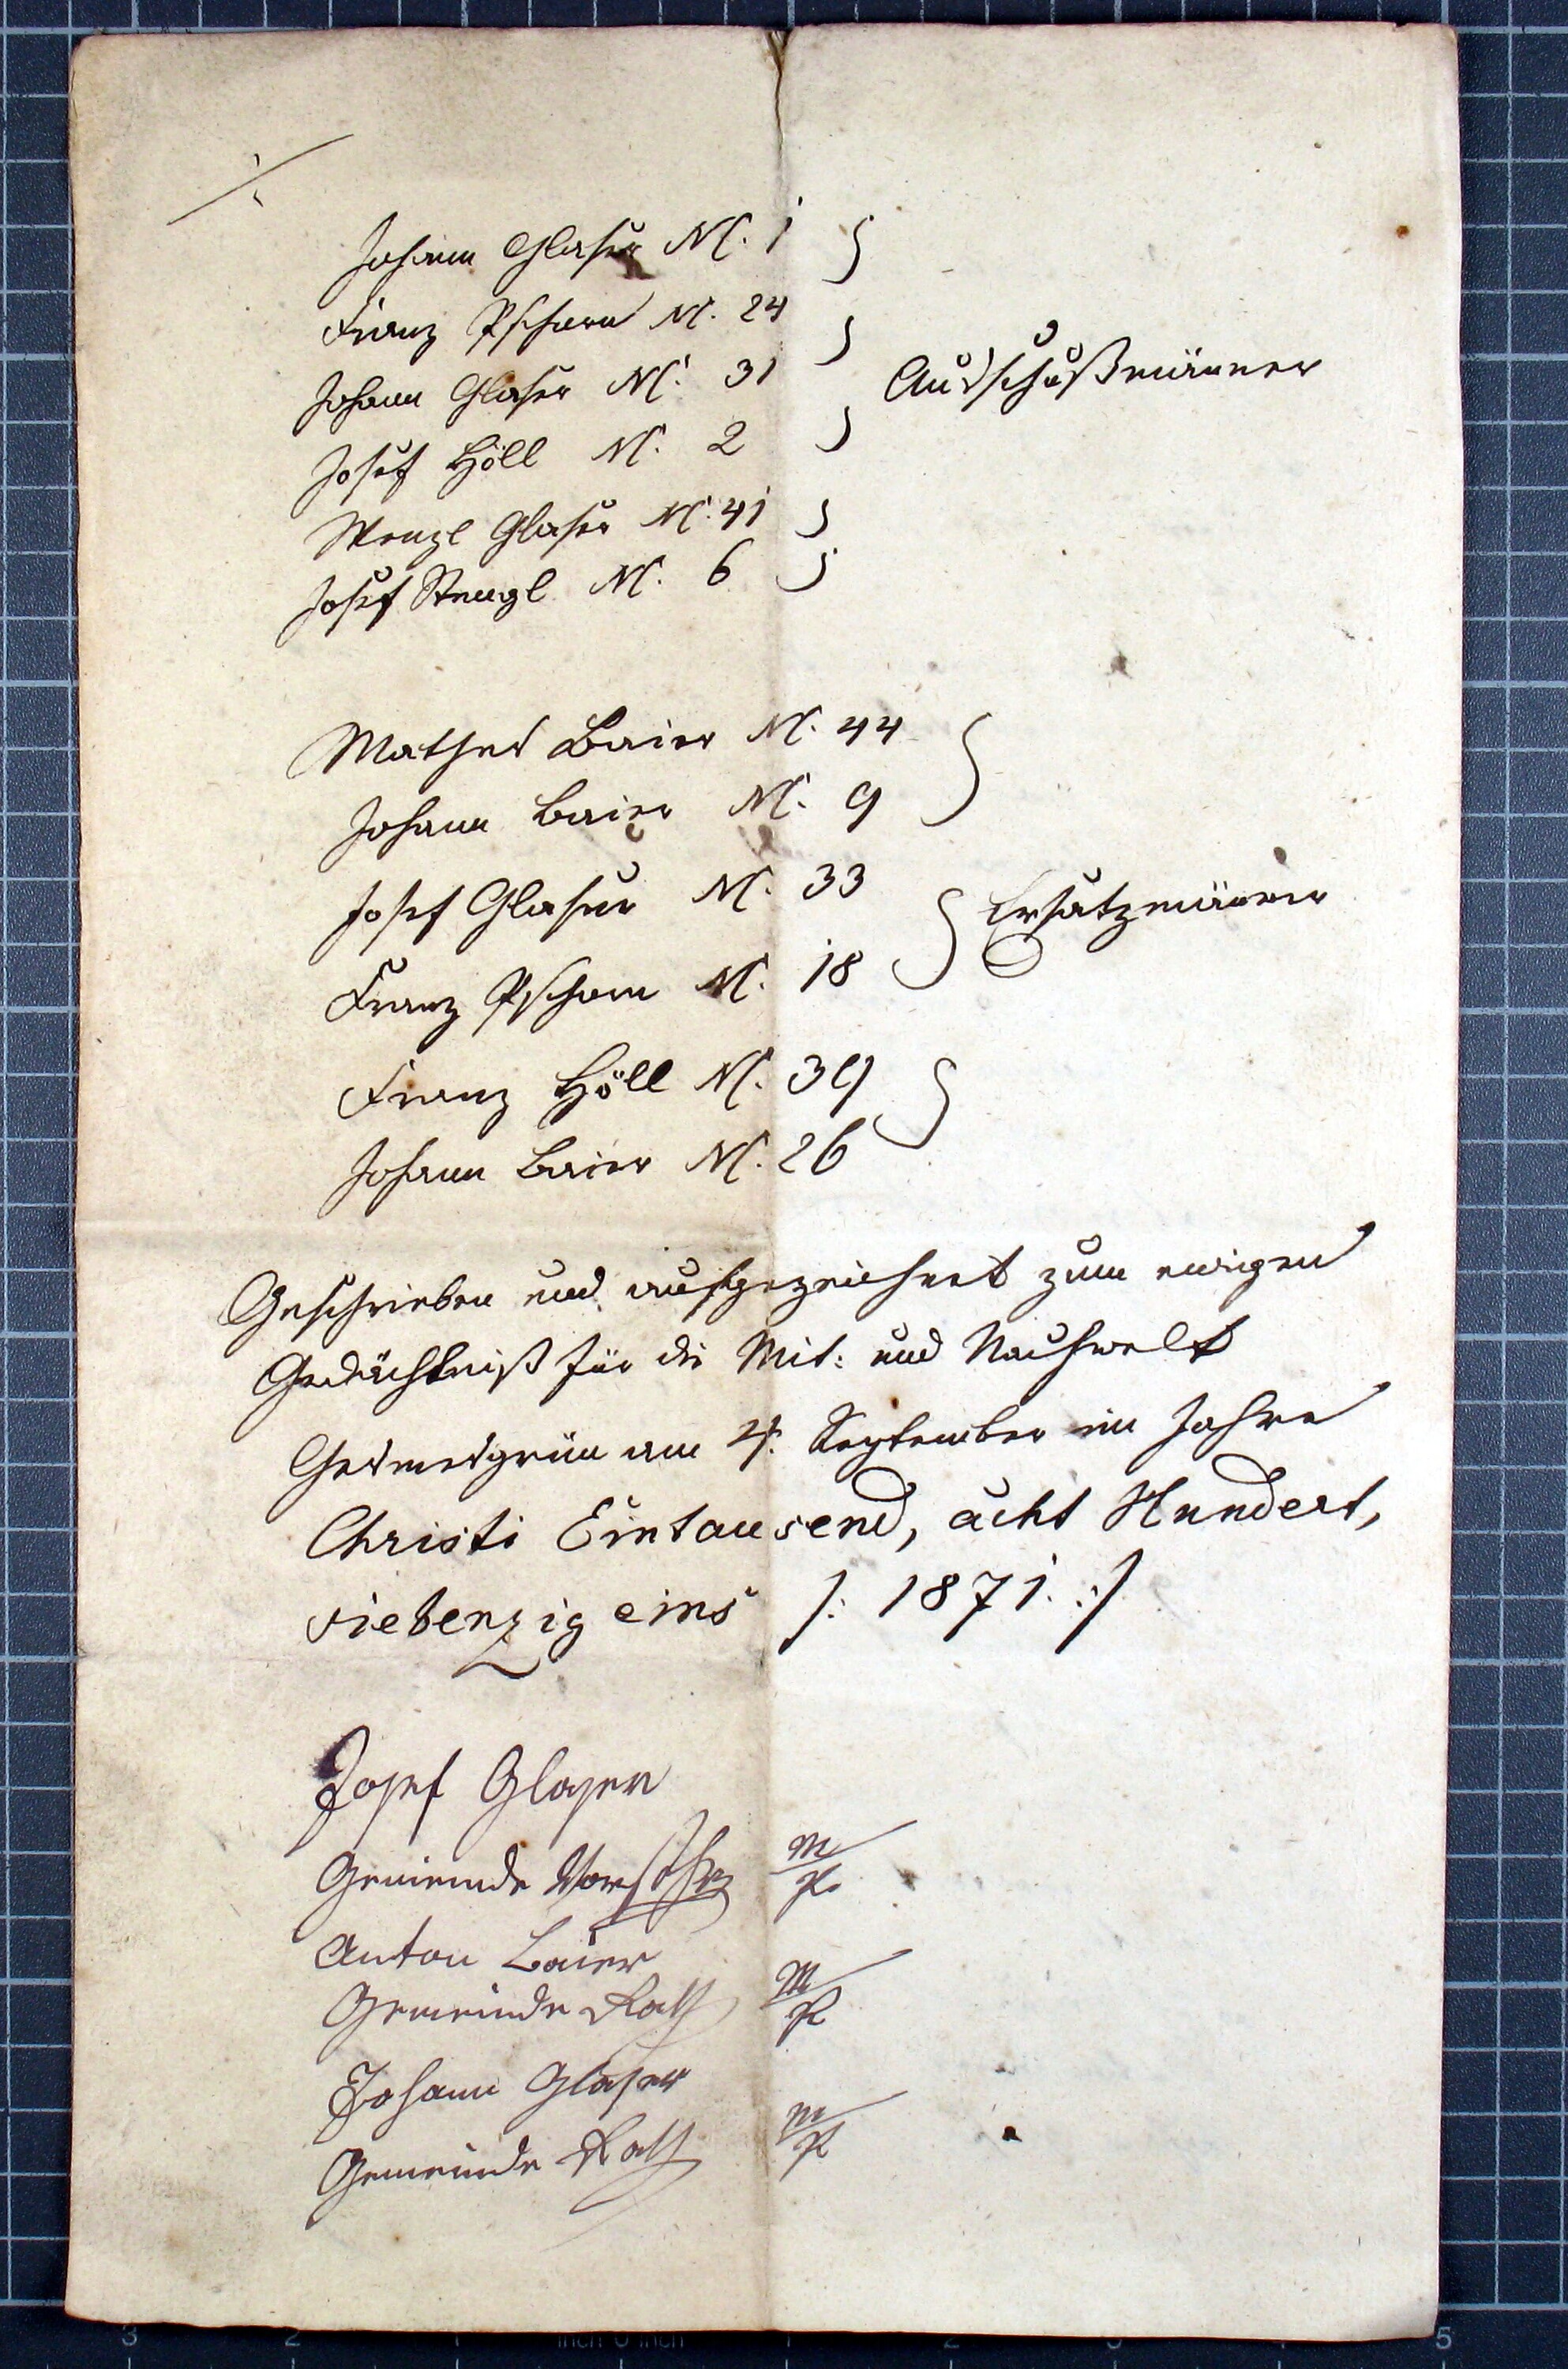 ./.
Johann Glaser N. 1
Franz Pscherer N. 24
Johann Glaser N. 31
Ausschußmänner
Josef Höll N. 2
Wenzl Glaser N. 41
Josef Stengl N. 6
Mathes Baier N. 44
Johann Baier N. 9
Josef Glaser N. 33
Ersatzmänner
Franz N. 18
Franz Höll N. 39
Johann Baier N. 26
Geschrieben und aufgezeichnet zum ewigen
Gedächtniß für die Mit: und Nachwelt
Gesmesgrün am 4. September im Jahre
Christi Eintausend, acht Hundert,
siebenzig eins /: 1871. :/
Josef Glaser
Gemeinde Vorsteher m/p.
Anton Baier
Gemeinde Rath m/p
Johann Glaser
Gemeinde Rath m/p